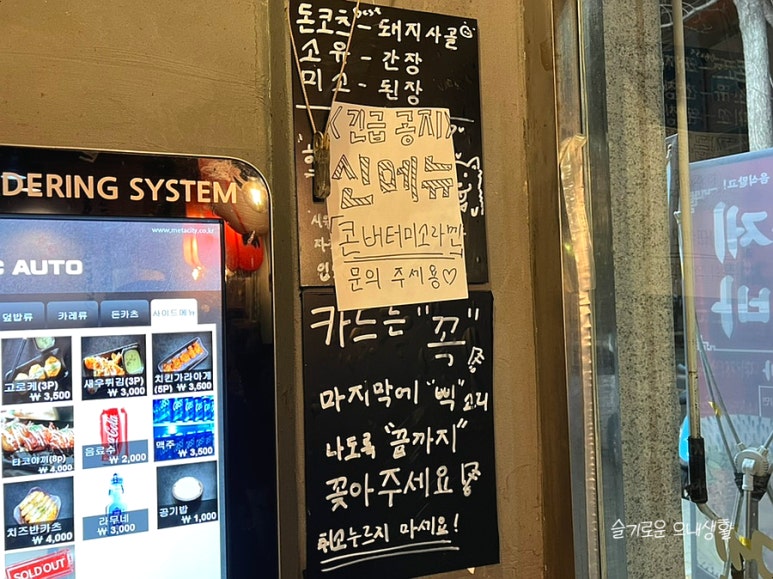 돈코츠 - 돼지사골
Best
소유 - 간장
미소 - 된장
<긴급 공지>
신메뉴
콘버터미소라멘
문의 주세용♡
카드는 "꼭"
마지막에 "삑" 소리
나도록 "끝까지"
꽂아주세요!
취소누르지 마세요!
DERING SYSTEM
www.metacity.co.kr
C AUTO
덮밥류 카레류 돈카츠 사이드메뉴
고로케(3P)
₩ 3,500
새우튀김(3P)
₩ 3,000
치킨가라아게
(5P) ₩ 3,500
타코야끼(8p)
₩ 4,000
음료수
₩ 2,000
맥주
₩ 3,500
치즈반카츠
₩ 4,000
라무네
₩ 3,000
공기밥
₩ 1,000
SOLD OUT
제
바
슬기로운 으내생활